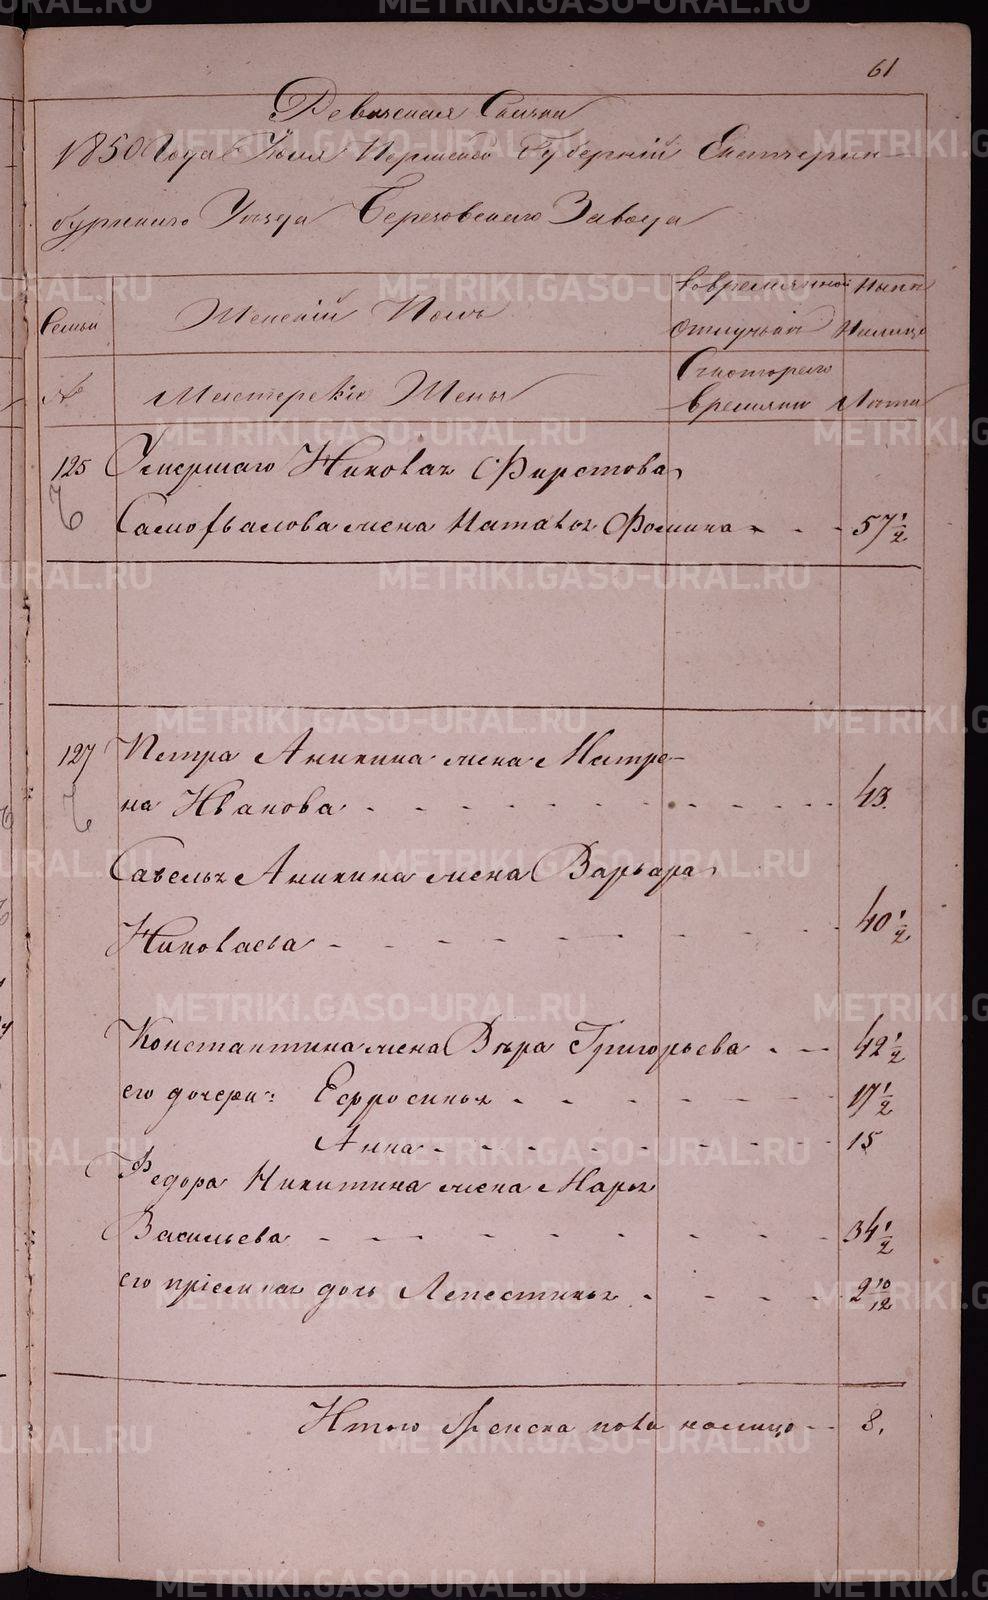 61
Ревижская Сказка
1850 Года Юля Пермской Губерній Екатерин-
бурскаго Уезда Березовскаго Завода
Семьи
Женскій Полъ
Вовременной
Отлучьки
Ныне
Налицо
№
Мастерскія Жены
Скотораго
времяни
Лета
125 Умершаго Николая Фирстова
Самохвалова жена Наталья Фомина - - - 57 1/2
127 Петра Аникина жена Матре-
на Иванова - - - - - - - - - 43.
Савелья Аникина жена Варвара
Николаева - - - - - - - - - 40 1/2
Константина жена Вера Григорьева - - 42 1/2
его дочери: Ефросинья - - - - - - 17 1/2
Анна - - - - - - - - 15
Федора Никитина жена Марья
Васильева - - - - - - - - - 34 1/2
его пріемная дочь Лепестинья - - - - 2 10/12
Итого женска пола налицо - - 8.
METRIKI.GASO-URAL.RU